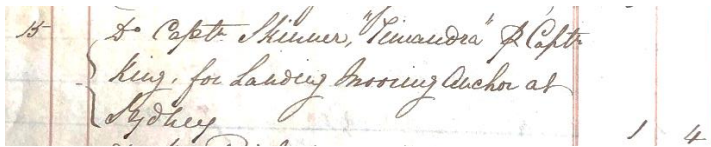 15 Do Captn Skinner, "Timandra" & Captn
King, for Landing Mooring Anchor at
Sydney 1 4